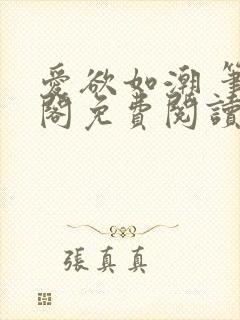 愛欲如潮 筆
閣免費閱讀
張真真